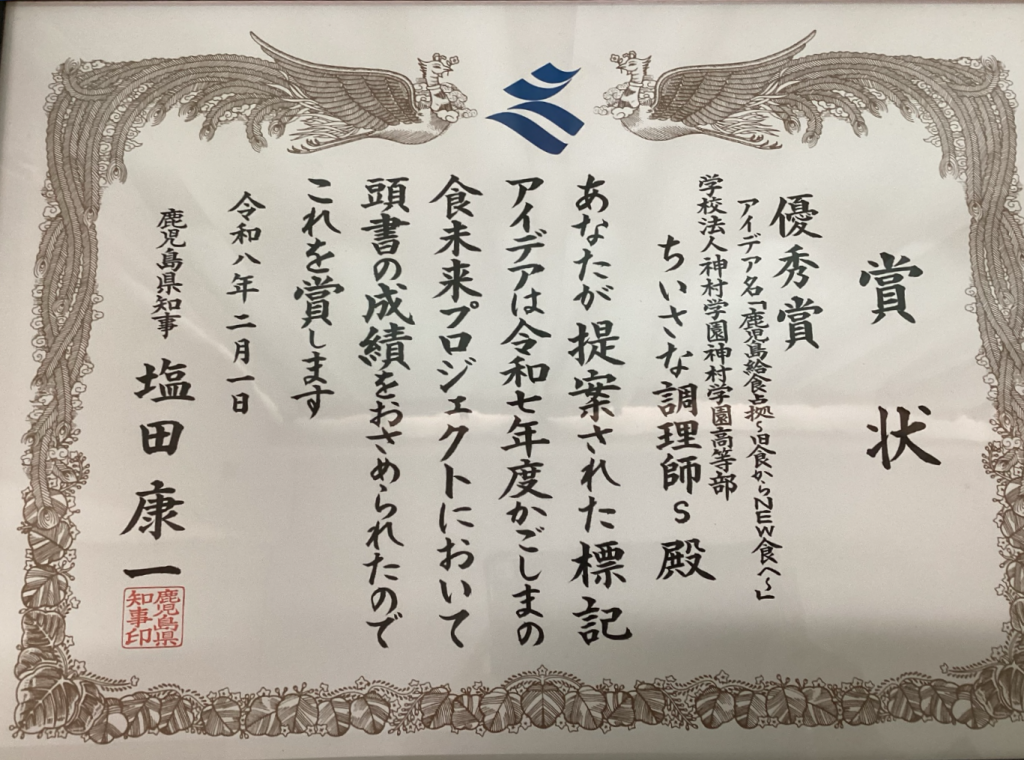 賞状
優秀賞
アイデア名「鹿児島給食占拠～旧食からNEW食へ～」
学校法人神村学園神村学園高等部
ちいさな調理師s 殿
あなたが提案された標記
アイデアは令和七年度かごしまの
食未来プロジェクトにおいて
頭書の成績をおさめられたので
これを賞します
令和八年二月一日
鹿児島県知事 塩田康一
鹿児島県
知事印